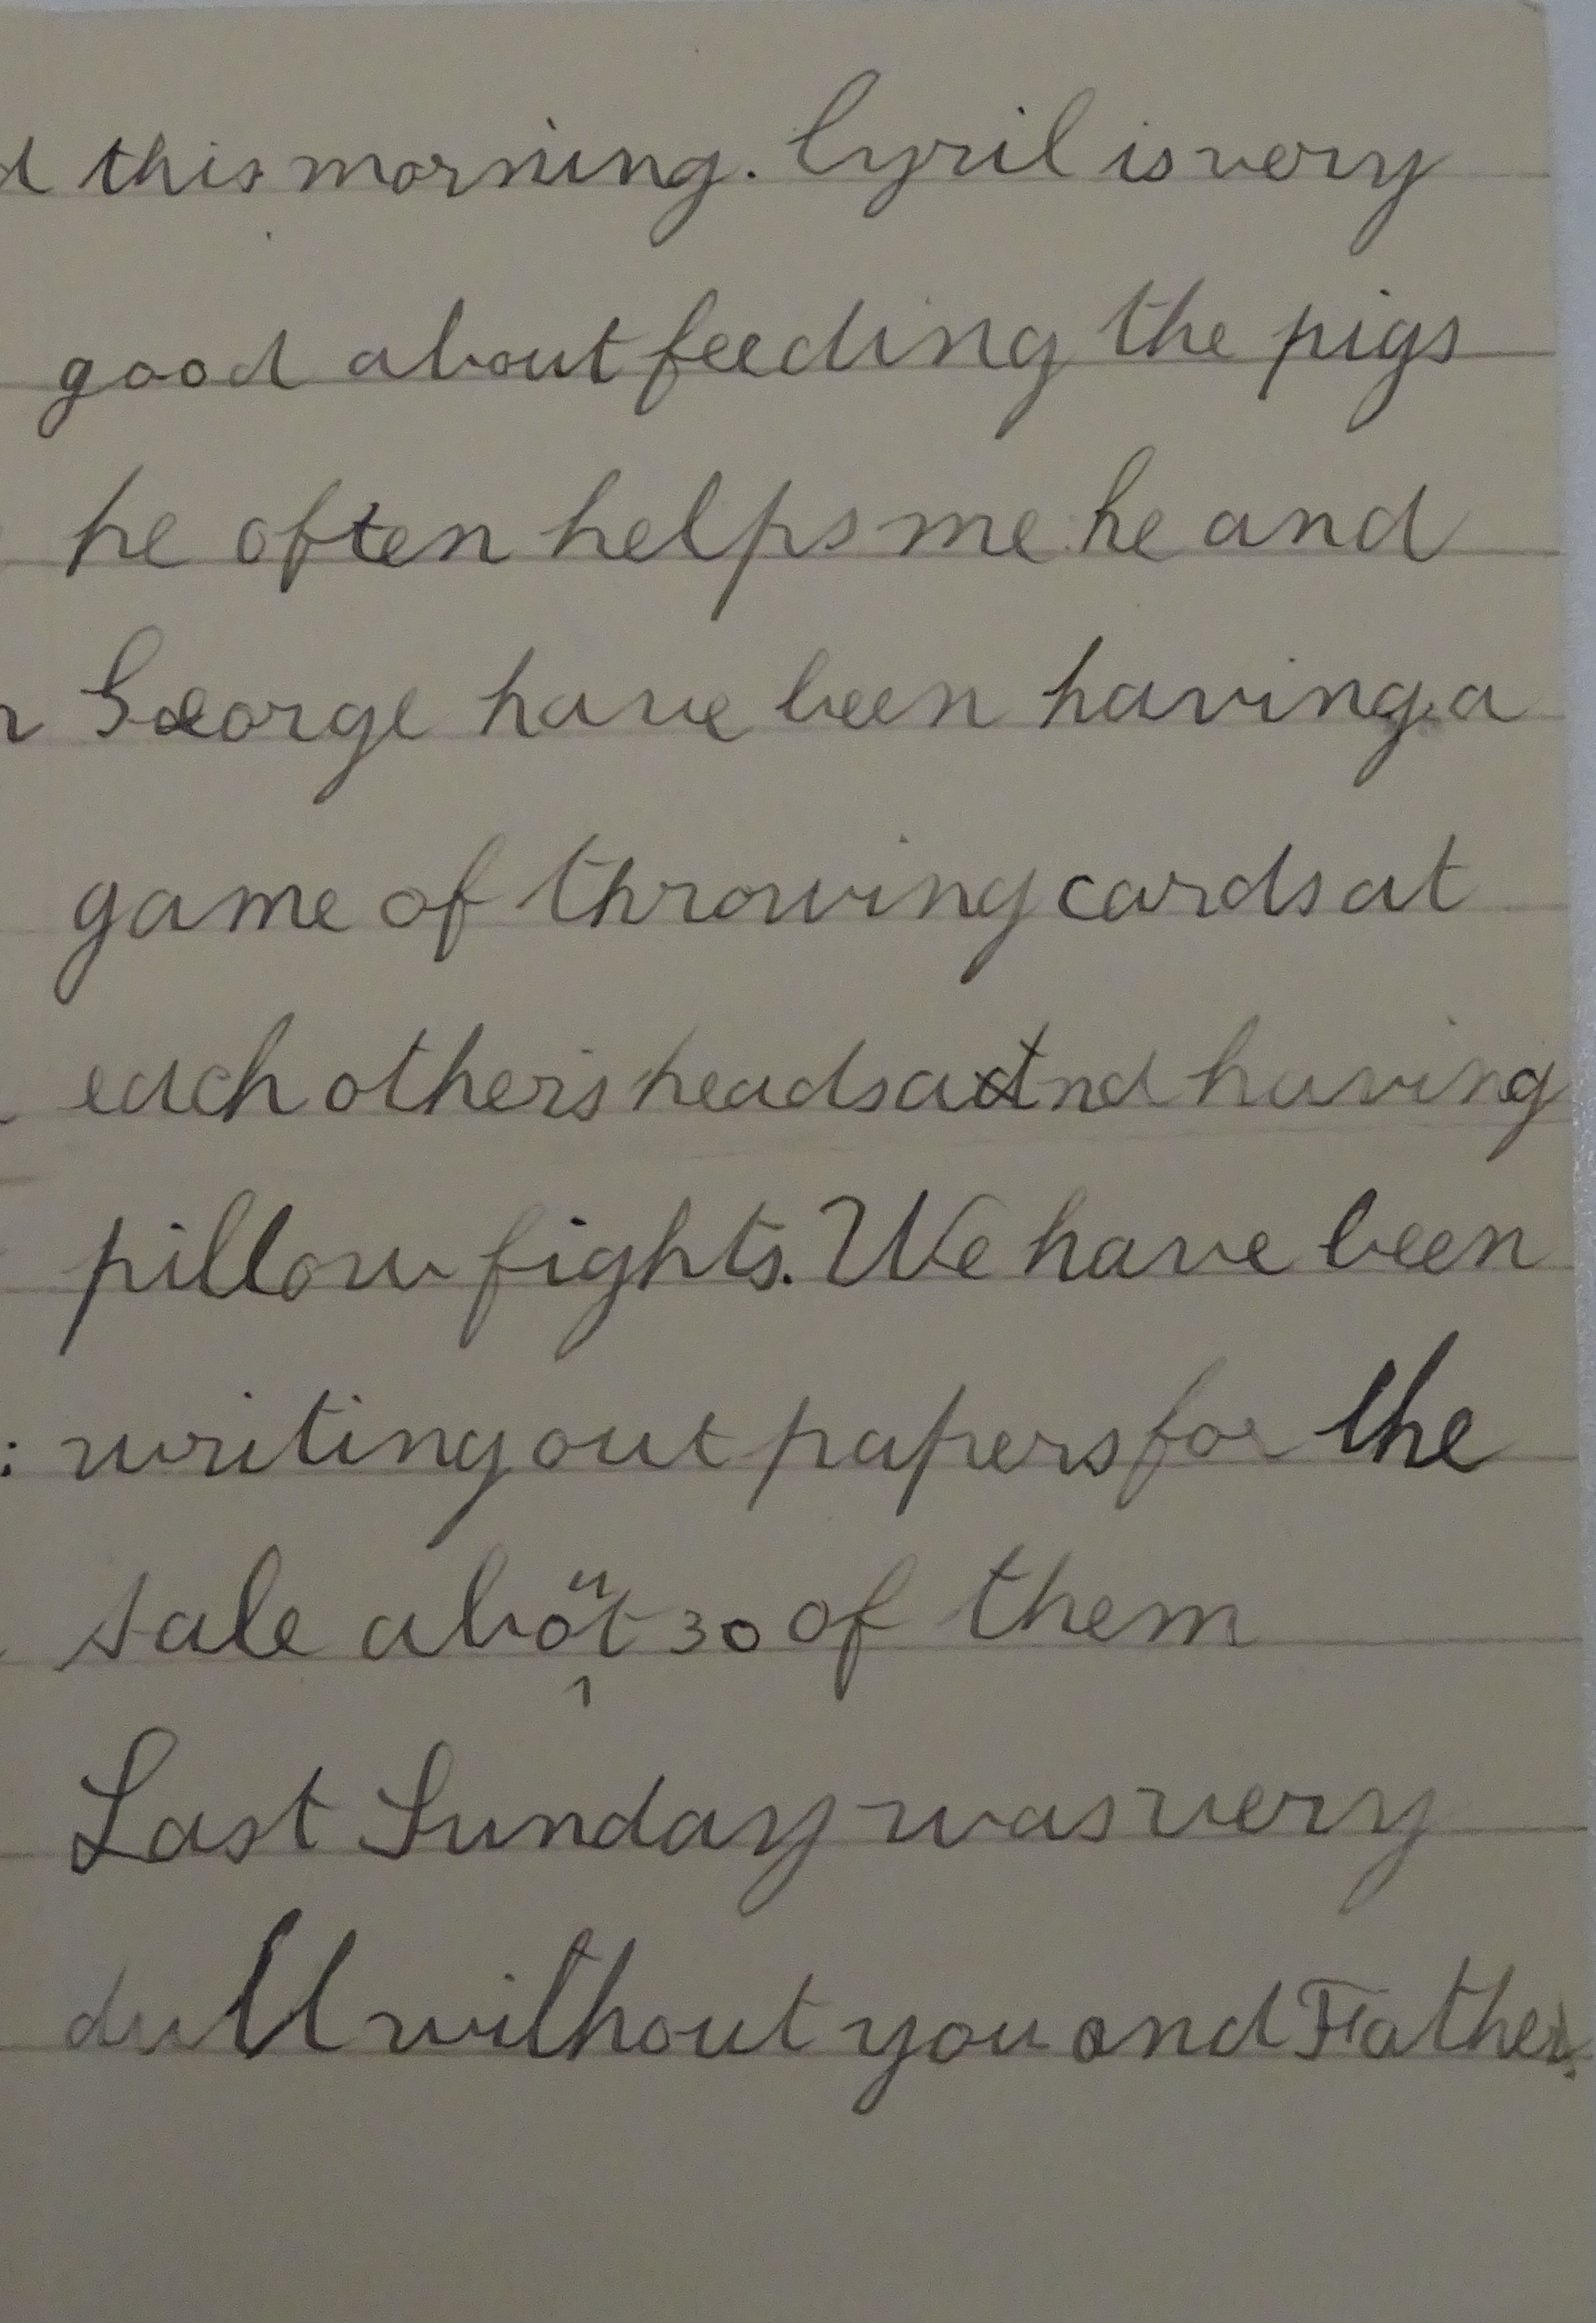 this morning. Cyril is very
good about feeding the pigs
he often helps me he and
George have been having a
game of throwing cards at
each others heads and having
pillow fights. We have been
writing out papers for the
sale about 30 of them
Last Sunday was very
dull without you and Father.